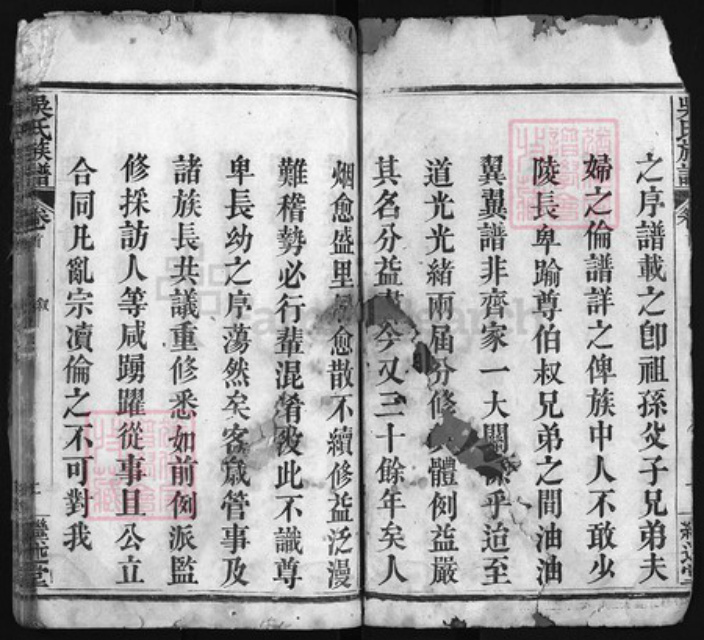 之序譜載之卽祖孫父子兄弟夫
婦之倫譜詳之俾族中人不敢少
陵長卑踰尊伯叔兄弟之間油油
翼翼譜非齊家一大關係乎迨至
道光光緒兩屆分修 體例益嚴
其名分益 今又三十餘年矣人
烟愈盛里 愈散不續修益泛漫
難稽勢必行輩混淆彼此不識尊
卑長幼之序蕩然矣客歲管事及
諸族長共議重修悉如前例派監
修採訪人等咸踴躍從事且公立
合同凡亂宗瀆倫之不可對我
吳氏族譜
卷首
敘